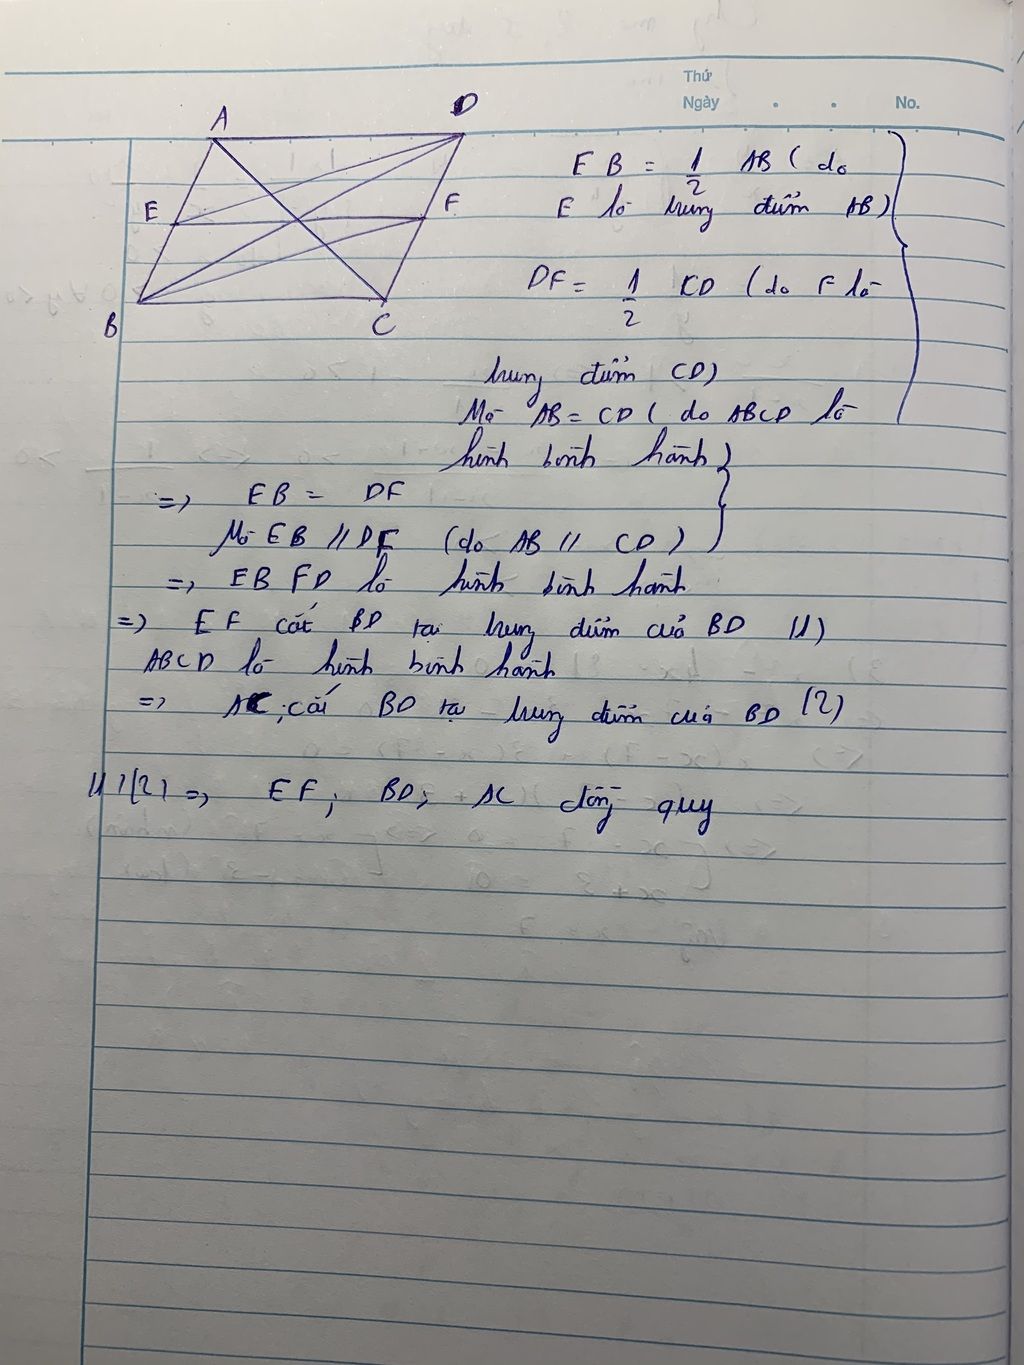 Thứ
Ngày . . No.
A D
E F
B C
EB = 1/2 AB ( do
E là trung điểm AB )
DF = 1/2 CD ( do F là
trung điểm CD )
Mà AB = CD ( do ABCD là
hình bình hành )
=> EB = DF
Mà EB // DF ( do AB // CD )
=> EBFD là hình bình hành
=> EF cắt BD tại trung điểm của BD (1)
ABCD là hình bình hành
=> AC ; cắt BD tại trung điểm của BD (2)
(1) (2) => EF ; BD ; AC đồng quy